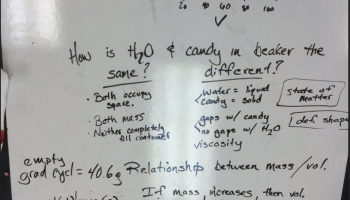 20 40 60 80 100
How is H₂O & candy in beaker the
same? different?
• Both occupy space.
• Both mass
• Neither completely fill container
water = liquid
candy = solid
State of Matter
gaps w/ candy
no gaps w/ H₂O
def shape
viscosity
empty
grad cycl = 40.6g
Relationship between mass/vol.
If mass increases, then vol.